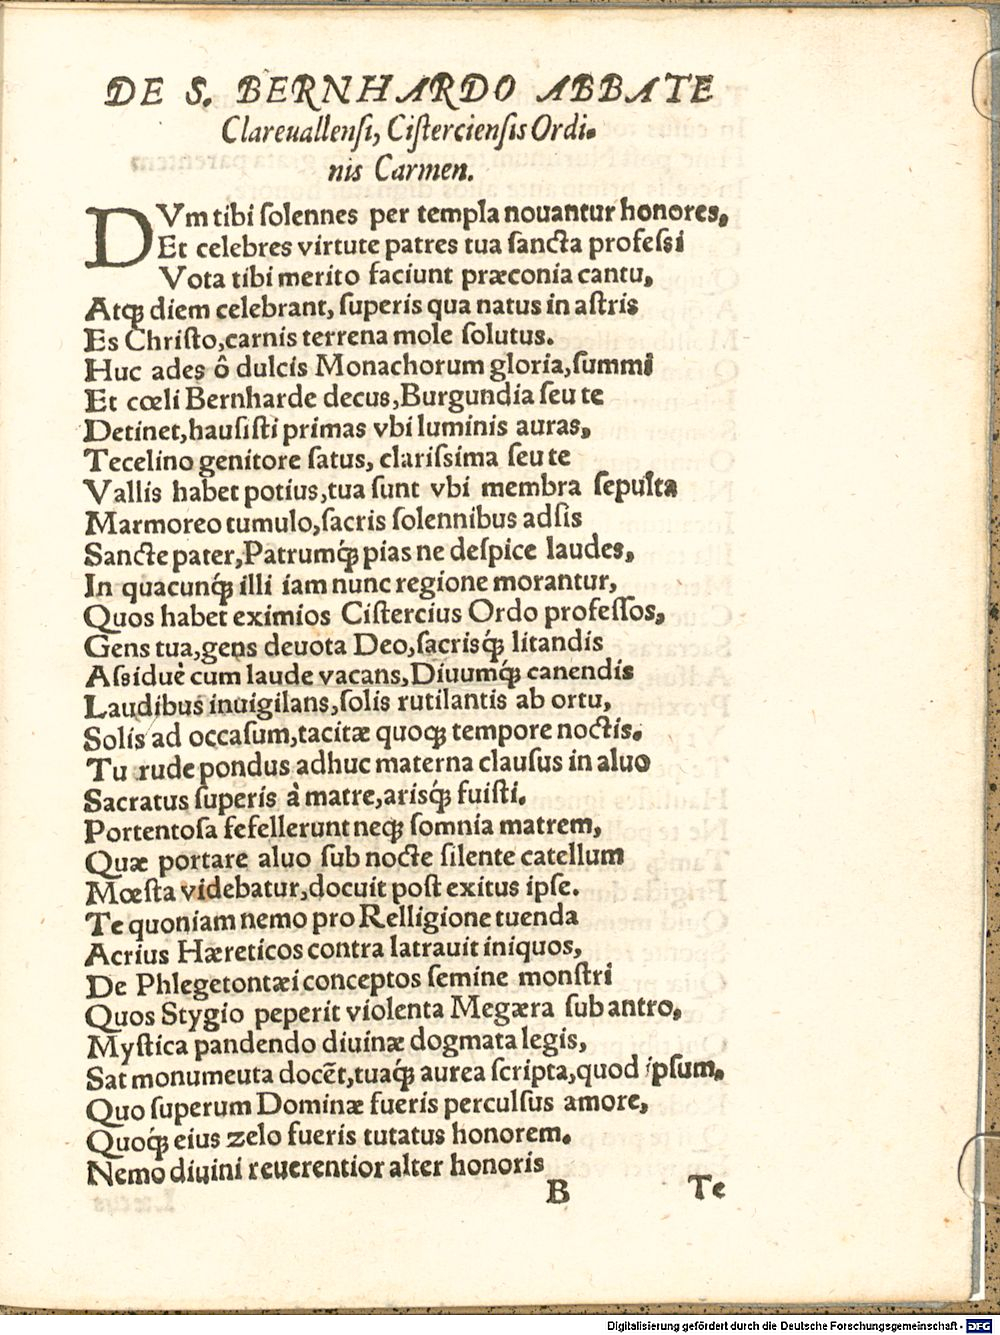 DE S. BERNHARDO ABBATE
Clareuallenſi, Ciſtercienſis Ordi-
nis Carmen.
DVm tibi ſolennes per templa nouantur honores,
Et celebres virtute patres tua ſancta profeſsi
Vota tibi merito faciunt præconia cantu,
Atq́ꝫ diem celebrant, ſuperis qua natus in aſtris
Es Chriſto, carnis terrena mole ſolutus.
Huc ades ô dulcis Monachorum gloria, ſummi
Et cœli Bernharde decus, Burgundia ſeu te
Detinet, hauſiſti primas vbi luminis auras,
Tecelino genitore ſatus, clariſsima ſeu te
Vallis habet potius, tua ſunt vbi membra ſepulta
Marmoreo tumulo, ſacris ſolennibus adſis
Sancte pater, Patrumq́ꝫ pias ne deſpice laudes,
In quacunq́ꝫ illi iam nunc regione morantur,
Quos habet eximios Ciſtercius Ordo profeſſos,
Gens tua, gens deuota Deo, ſacrisq́ꝫ litandis
Aſsiduè cum laude vacans, Diuumq́ꝫ canendis
Laudibus inuigilans, ſolis rutilantis ab ortu,
Solis ad occaſum, tacitæ quoqꝫ tempore noctis.
Tu rude pondus adhuc materna clauſus in aluo
Sacratus ſuperis à matre, arisq́ꝫ fuiſti.
Portentoſa fefellerunt neqꝫ ſomnia matrem,
Quæ portare aluo ſub nocte ſilente catellum
Mœſta videbatur, docuit poſt exitus ipſe.
Te quoniam nemo pro Relligione tuenda
Acrius Hæreticos contra latrauit iniquos,
De Phlegetontæi conceptos ſemine monſtri
Quos Stygio peperit violenta Megæra ſub antro,
Myſtica pandendo diuinæ dogmata legis,
Sat monumeuta docẽt, tuaq́ꝫ aurea ſcripta, quod ipſum,
Quo ſuperum Dominæ fueris perculſus amore,
Quoq́ꝫ eius zelo fueris tutatus honorem.
Nemo diuini reuerentior alter honoris
B Te
Digitalisierung gefördert durch die Deutsche Forschungsgemeinschaft - DFG